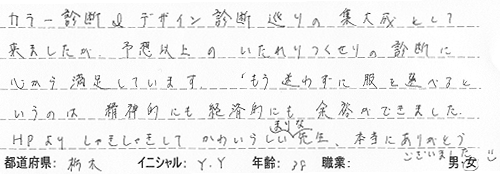 カラー診断&デザイン診断巡りの集大成として
来ましたが、予想以上のいたれりつくせりの診断に
心から満足しています。「もう迷わずに服を選べると
いうのは精神的にも経済的にも余裕ができました。
HPよりしゃきしゃきしてかわいらしい先生、本当にありがとう
ございました
都道府県: 栃木 イニシャル: Y.Y 年齢: 28 職業: 男・女